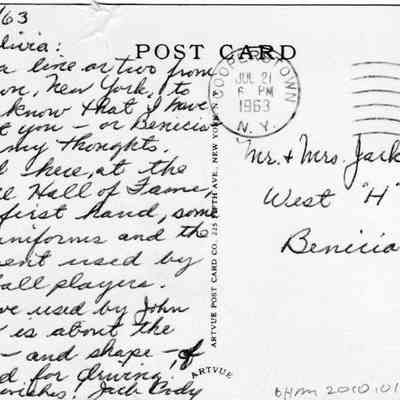 /63
livia:
a line or two from
own, New York, to
know that I have
t you - or Benicia
my thoughts.
d here, at the
e Hall of Fame,
first hand, some
uniforms and the
ent used by
all players.
ve used by John
is about the
- and shape - of
d for driving
wishes. Jack Rody
POST CARD
COOPERSTOWN
JUL 21
6 PM
1963
N. Y.
Mr. + Mrs. Jack
West "H"
Benicia
ARTVUE POST CARD CO. 225 FIFTH AVE. NEW YORK N.
ARTVUE
BHM 2010.01